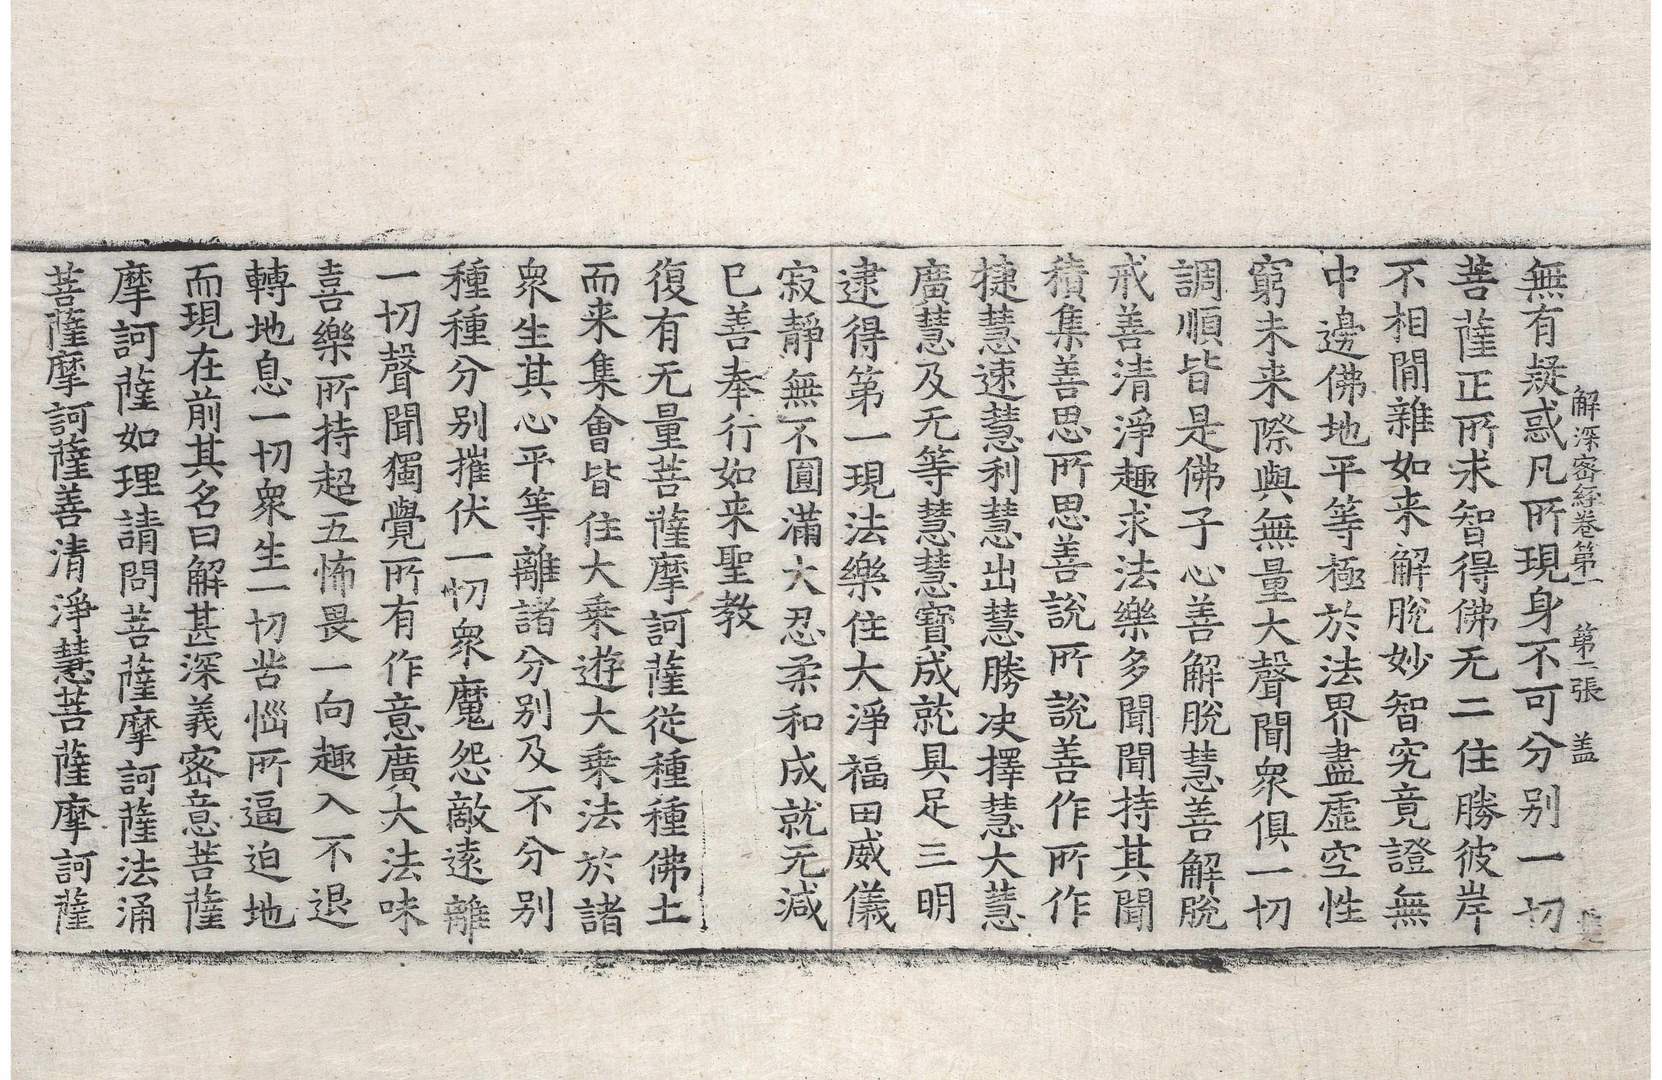 解深密經卷第一　第二張　盖
無有疑惑凡所現身不可分別一切
菩薩正所求智得佛无二住勝彼岸
不相間雜如来解脫妙智究竟證無
中邊佛地平等極於法界盡虛空性
窮未来際與無量大聲聞衆俱一切
調順皆是佛子心善解脫慧善解脫
戒善清淨趣求法樂多聞聞持其聞
積集善思所思善說所說善作所作
捷慧速慧利慧出慧勝决擇慧大慧
廣慧及无等慧慧寶成就具足三明
逮得第一現法樂住大淨福田威儀
寂靜無不圓滿大忍柔和成就无減
已善奉行如来聖教
復有无量菩薩摩訶薩從種種佛土
而来集會皆住大乘遊大乘法於諸
衆生其心平等離諸分別及不分別
種種分別摧伏一切衆魔怨敵遠離
一切聲聞獨覺所有作意廣大法味
喜樂所持超五怖畏一向趣入不退
轉地息一切衆生一切苦惱所逼迫地
而現在前其名曰解甚深義密意菩薩
摩訶薩如理請問菩薩摩訶薩法涌
菩薩摩訶薩善清淨慧菩薩摩訶薩